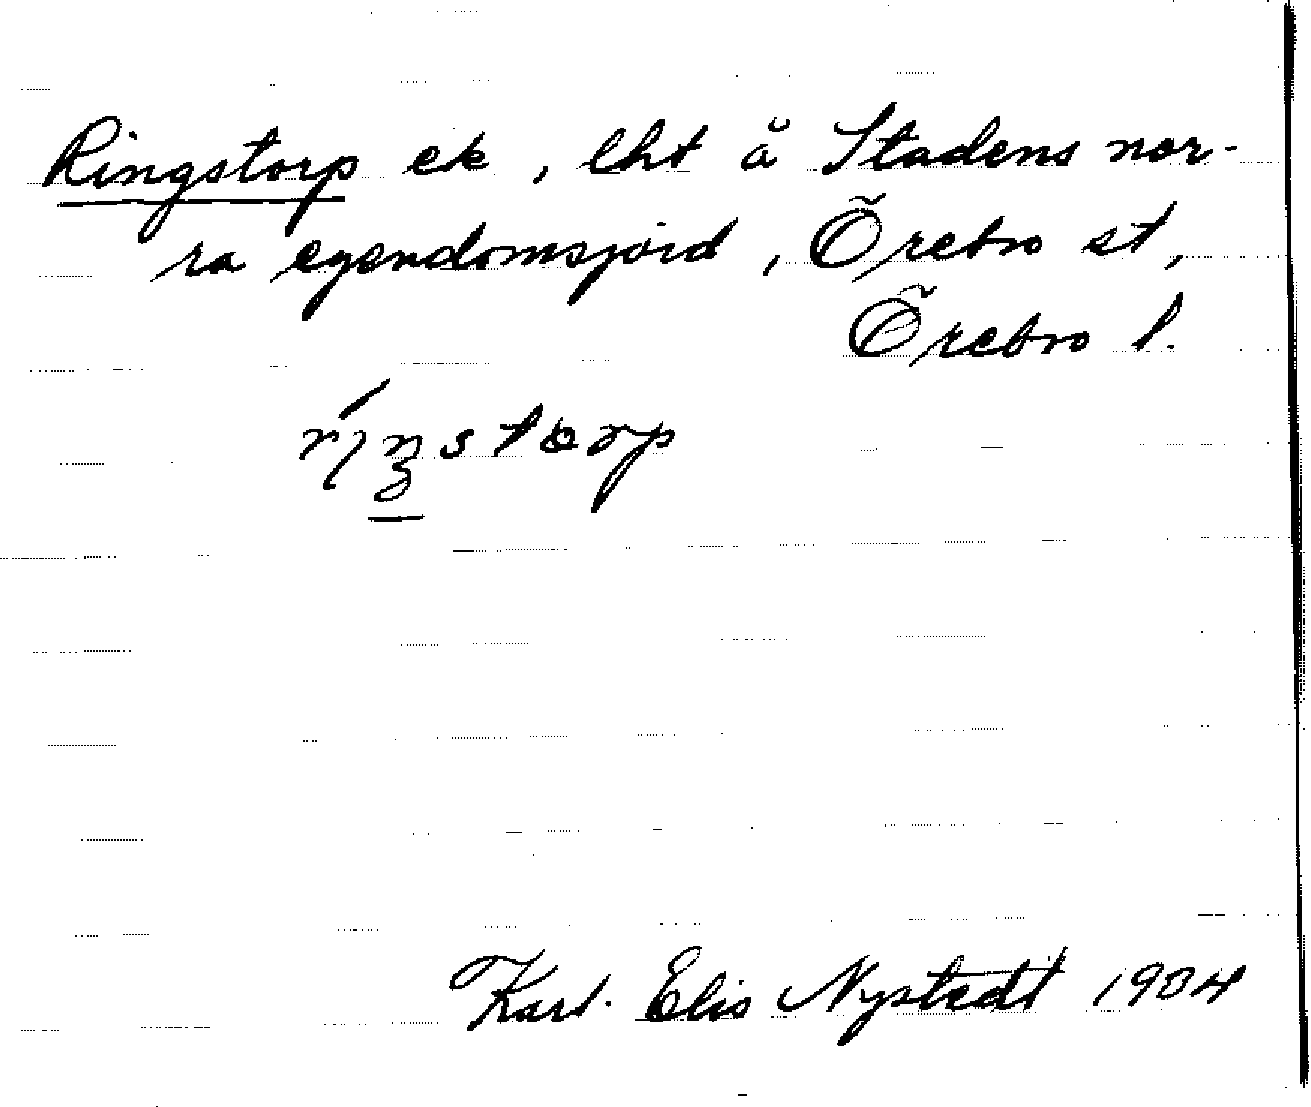 Ringstorp ek, lht å Stadens nor-
ra egendomsjord, Örebro st,
Örebro l.
Karl Elis Nystedt 1904